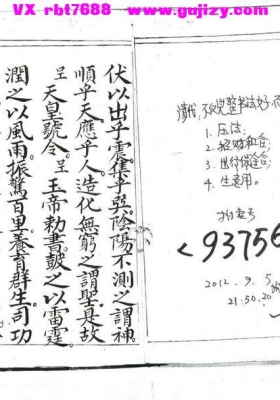 VX rbt7688  www.gujizy.com
伏以出乎震集乎巽陰陽不測之謂神
順乎天應乎人造化無窮之謂聖是故
呈天皇號令
呈玉帝勅書鼓之以雷霆
潤之以風雨振驚百里養育群生司功
清代
1. 压法;
2. 招财和合;
3. 出行保全合;
4. 生意用。
<93756
2012.9.5
21:50.20
VX rbt7688  www.gujizy.com